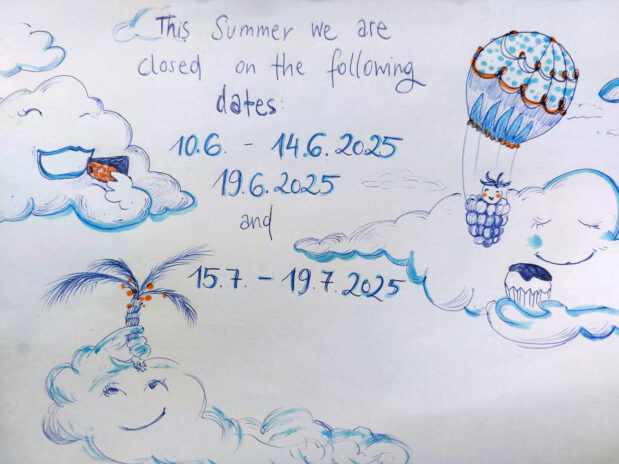 This Summer we are
closed on the following
dates:
10.6. - 14.6.2025
19.6.2025
and
15.7. - 19.7.2025